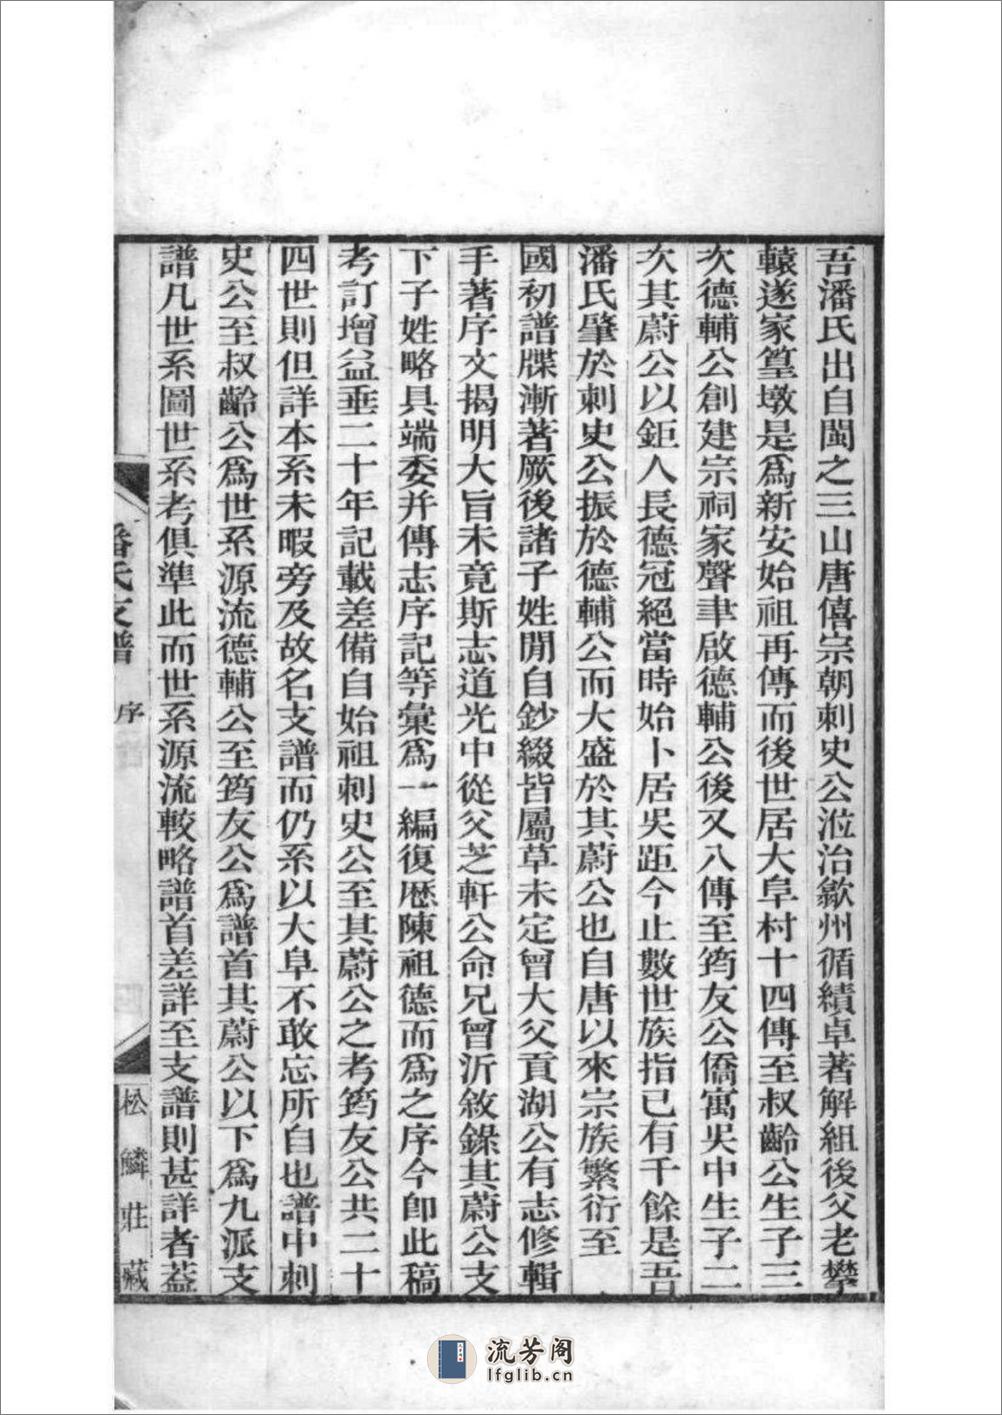 吾潘氏出自閩之三山唐僖宗朝刺史公涖治歙州循績卓著解組後父老攀
轅遂家篁墩是爲新安始祖再傳而後世居大阜村十四傳至叔齡公生子三
次德輔公創建宗祠家聲聿啟德輔公後又八傳至筠友公僑寓吳中生子二
次其蔚公以鉅人長德冠絕當時始卜居吳距今止數世族指已有千餘是吾
潘氏肇於刺史公振於德輔公而大盛於其蔚公也自唐以來宗族繁衍至
國初譜牒漸著厥後諸子姓閒自鈔綴皆屬草未定曾大父貢湖公有志修輯
手著序文揭明大旨未竟斯志道光中從父芝軒公命兄曾沂敘錄其蔚公支
下子姓略具端委并傳志序記等彙爲一編復歷陳祖德而爲之序今卽此稿
考訂增益垂二十年記載差備自始祖刺史公至其蔚公之考筠友公共二十
四世則但詳本系未暇旁及故名支譜而仍系以大阜不敢忘所自也譜中刺
史公至叔齡公爲世系源流德輔公至筠友公爲譜首其蔚公以下爲九派支
譜凡世系圖世系考俱準此而世系源流較略譜首差詳至支譜則甚詳者葢
潘氏支譜 序
松鱗莊藏
流芳阁
lfglib.cn